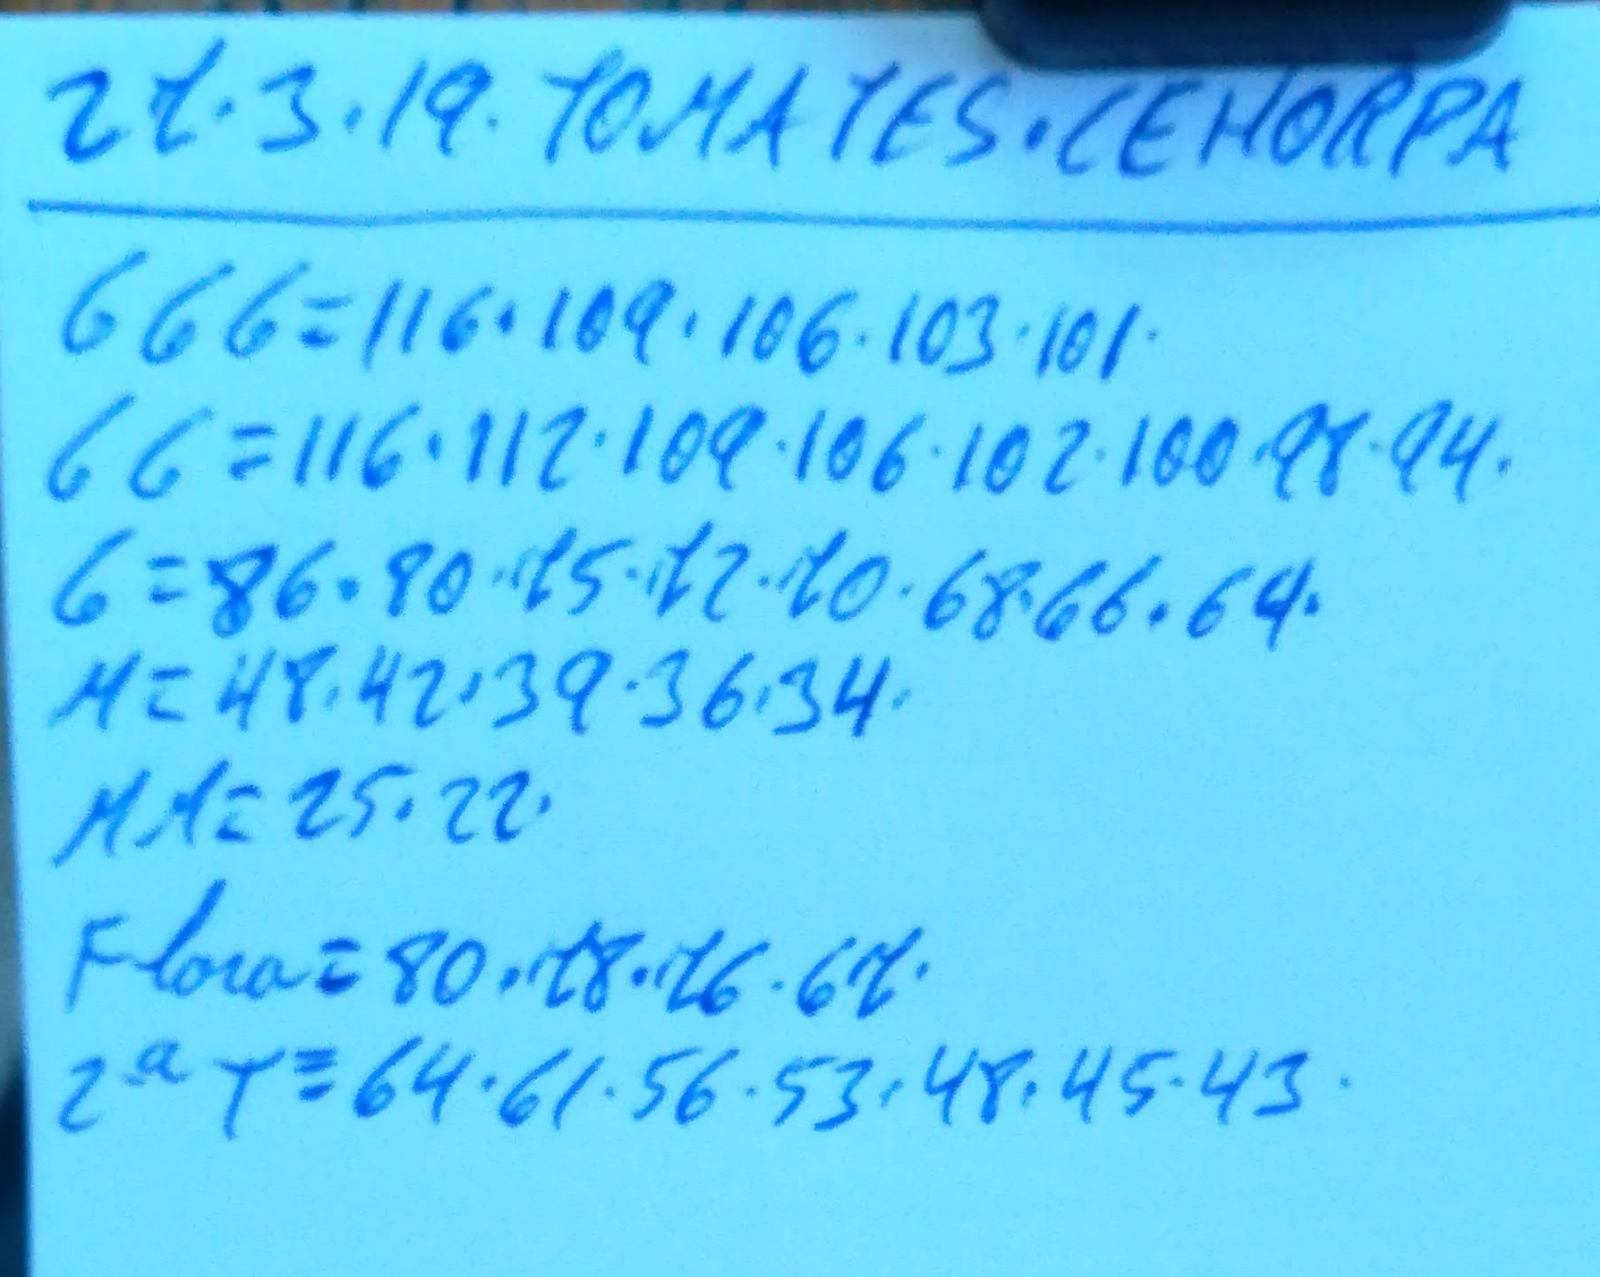 27.3.19. TOMATES.CEHORPA
GGG=116.109.106.103.101.
GG=116.112.109.106.102.100.98.94.
G=86.80.75.72.70.68.66.64.
M=48.42.39.36.34.
MM=25.22.
Flora=80.78.76.67.
2ª T=64.61.56.53.48.45.43.